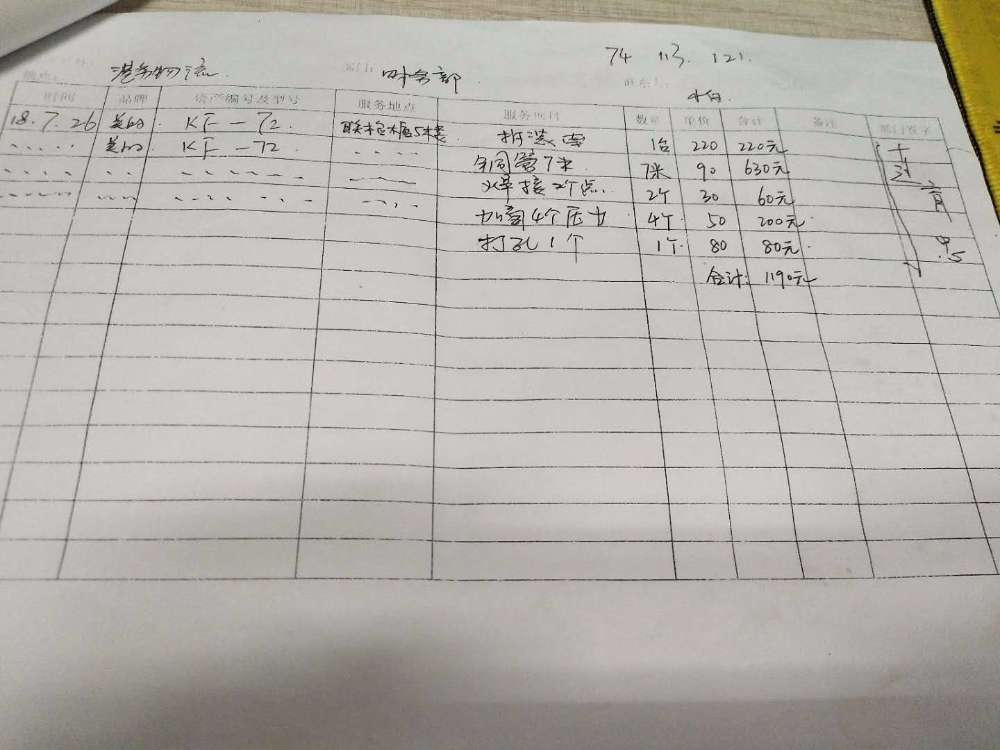 74 113. 121.
港务物流 财务部
时间 品牌 资产编号及型号 服务地点 服务项目 数量 单价 合计 备注 部门签字
18.7.26 美的 KF-72. 联检大楼5楼 拆装 1台 220 220元
美的 KF-72 铜管7米 7米 90 630元
焊接2个点 2个 30 60元
加氟4个压力 4个 50 200元
打孔1个 1个 80 80元
9.5
合计: 1190元